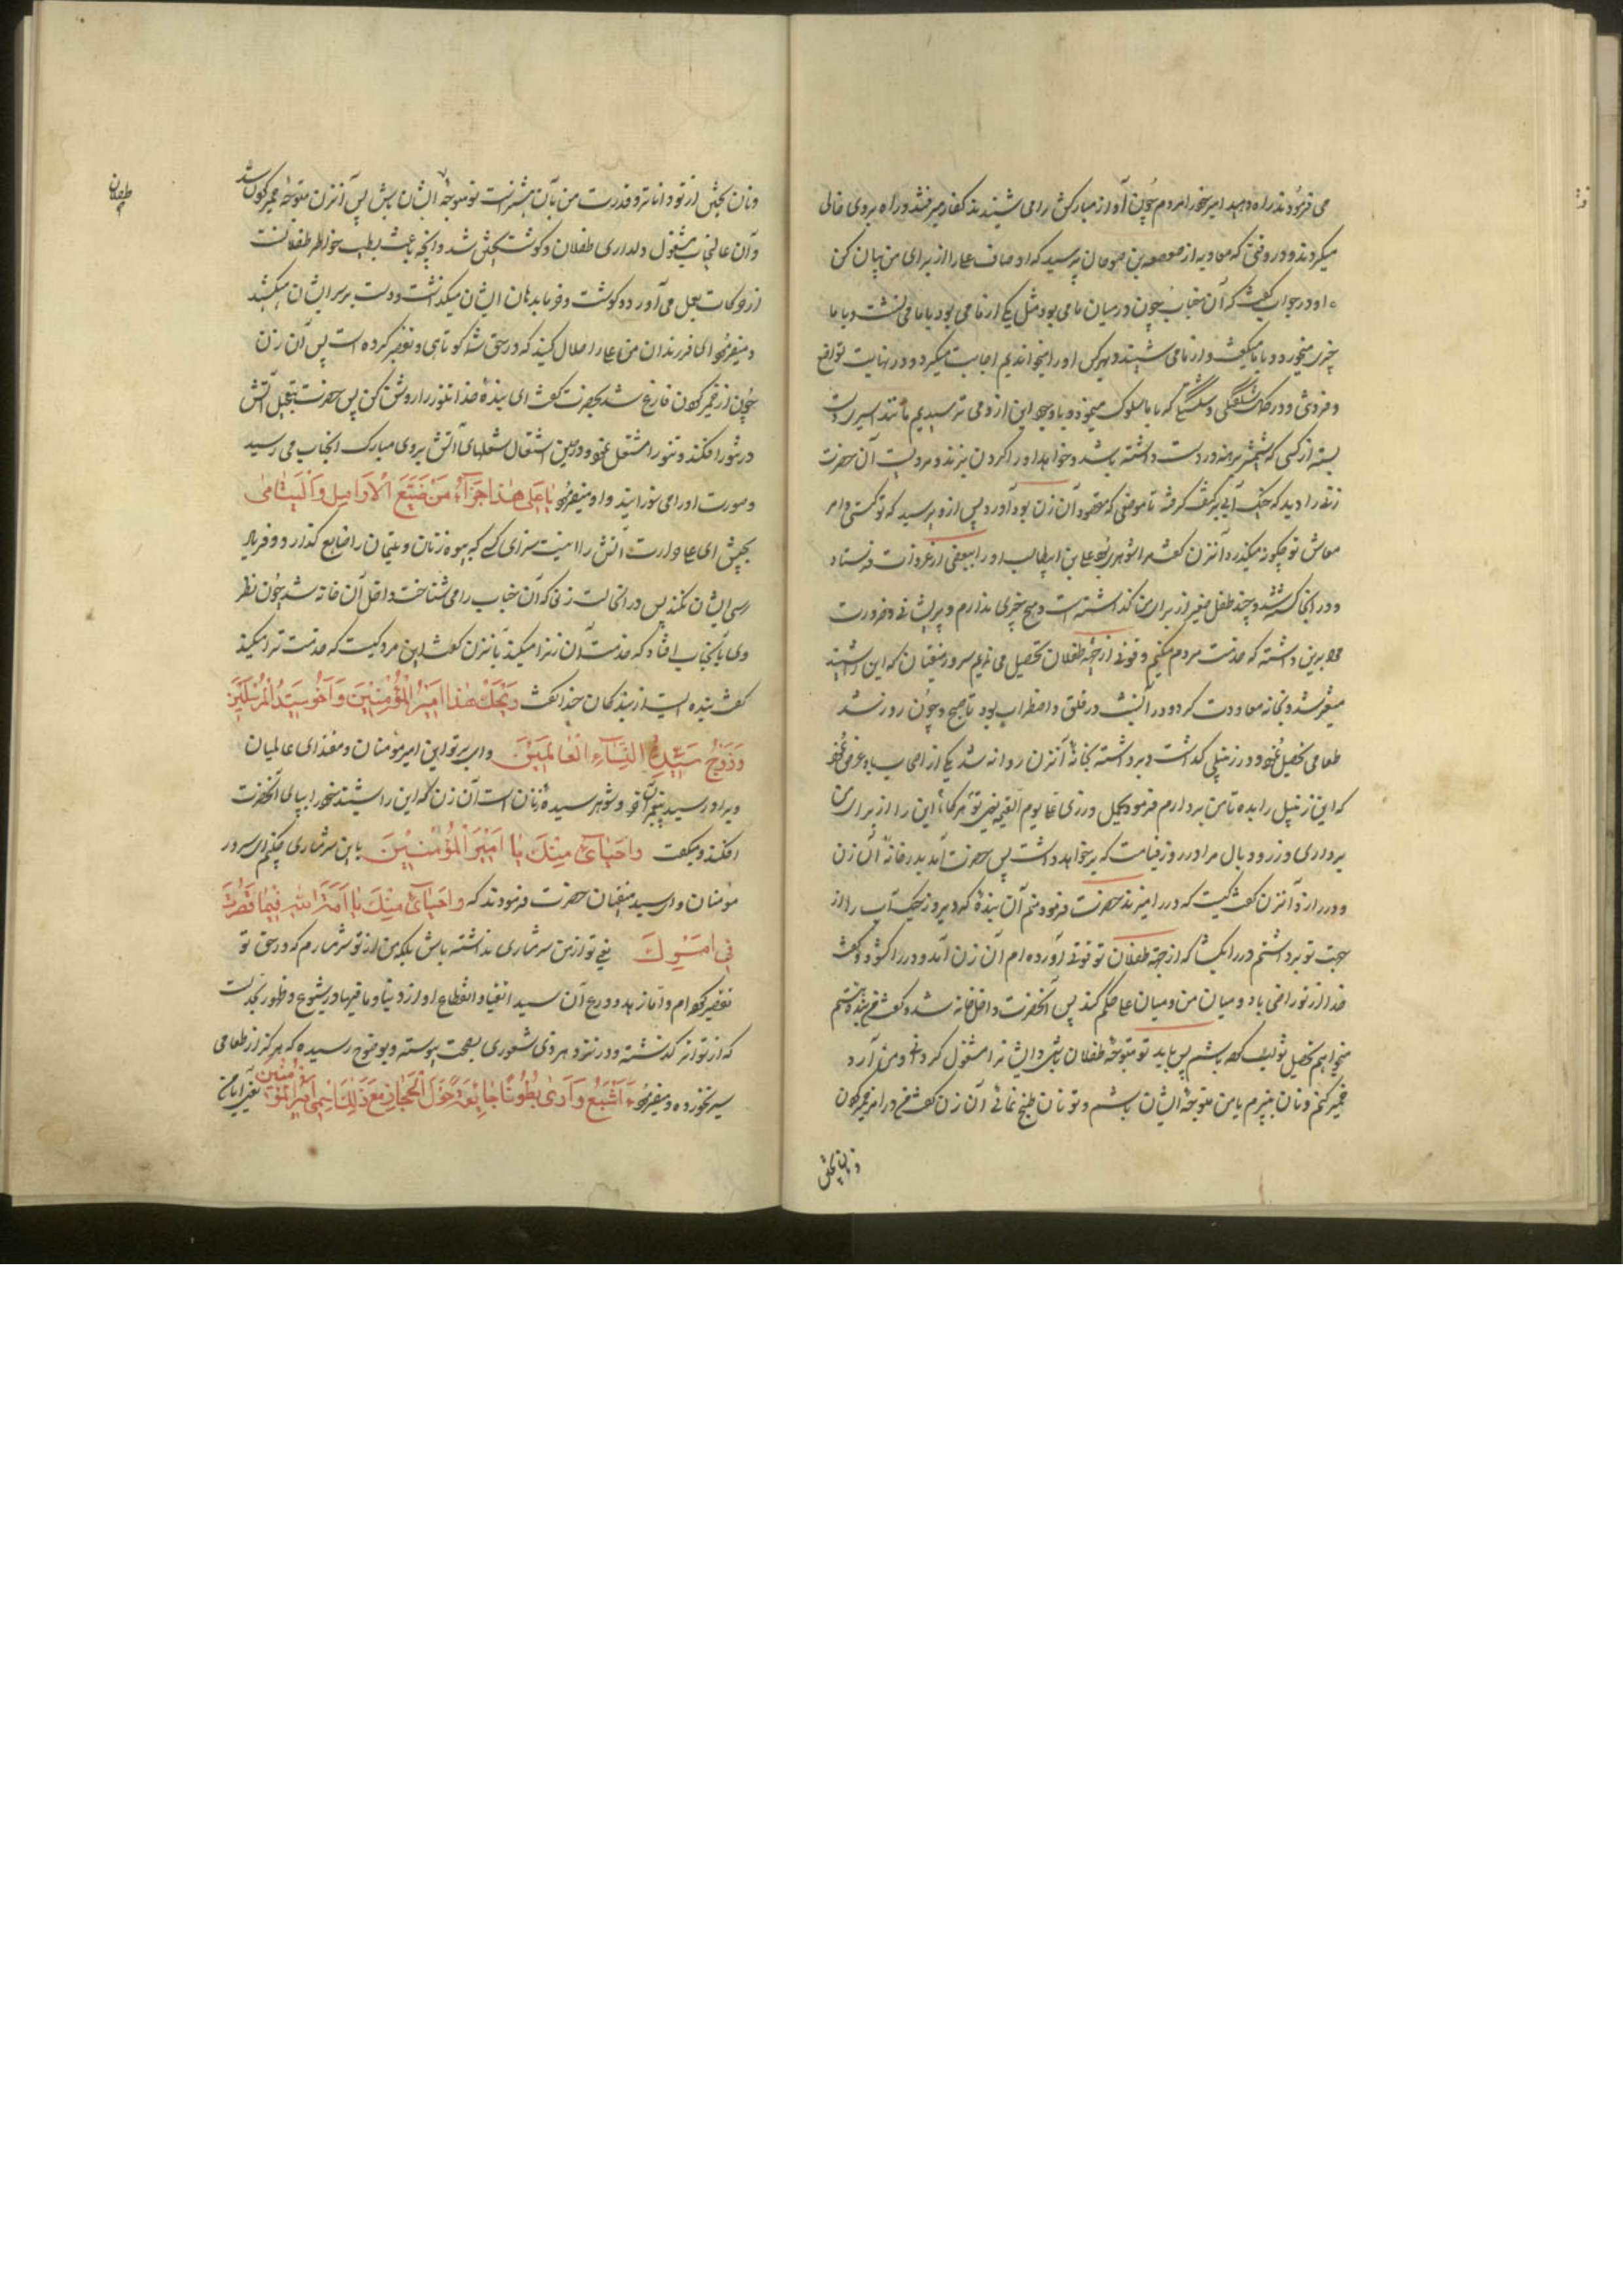 می فرمودند راه دهید امیر خود را مردم چون آواز مبارکش را می شنیدند کنار میرفتند و راه بروی خالی
میکردند و در وقتی که معاویه از صعصعه بن صوحان پرسید که اوصاف علی را از برای من بیان کن
او در جواب گفت که آن جناب چون در میان ما می بود مثل یکی از ما می بود با ما می نشست و با ما
چیزی میخورد و با ما میگفت و از ما می شنید و بهر کس او را میخواندیم اجابت میکرد و در نهایت تواضع
و فروتنی و در کمال شکستگی که با ما سلوک مینمود و با وجود این از و می ترسیدیم مانند اسیر دست
بسته از کسی که شمشیر برهنه در دست داشته باشد و خواهد او را گردن بزند و مرویست آن حضرت
زنی را دید که خیک آبی بر کتف گرفته تا موضعی که مقصود آن زن بود آورد پس ازو پرسید که تو کیستی و امر
معاش تو چگونه میگذرد آنزن گفت مرا شوهری بود علی بن ابیطالب او را ببعضی از غزوات فرستاد
و در آنجا کشته شد و چند طفل صغیر از برای من گذاشته است و هیچ چیزی ندارم و پریشانی و ضرورت
مرا برین داشته که خدمت مردم میکنم و قوتی از جهة طفلان تحصیل می نمایم سرور متقیان که این را شنید
متغیر شد و بخانه معاودت کرد و در آن شب در قلق و اضطراب بود تا صبح و چون روز شد
طعامی تحصیل نمود و در زنبیلی گذاشت و برداشته بخانه آنزن روانه شد یکی از اصحاب باو عرض نمود
که این زنبیل را بده تا من بردارم فرمود یحمل وزری عنا یوم القیمه یعنی تو هر گاه این را از برای من
برداری وزر و وبال مرا در روز قیامت که بر خواهد داشت پس حضرت آمد بدر خانه آن زن
و در را زد آنزن گفت کیست که در را میزند حضرت فرمود منم آن بنده که دیروز خیک آب را از
جهت تو برداشتم در را بگشا که از جهة طفلان تو قوتی آورده ام آن زن آمد و در را گشود و گفت
خدا از تو راضی باد و میان من و میان علی حکم کند پس آنحضرت داخل خانه شد و گفت
میخواهم تحصیل ثواب کرده باشم پس باید تو متوجه طفلان باش و ایشانرا مشغول گردانی و من آرد
خمیر کنم و نان بپزم یا من متوجه ایشان باشم و تو نان طبخ نمائی آن زن گفت من در امر خمیر کردن
و نان پختن
و نان پختن از تو داناتر و قدرت من بآن بیشترست تو متوجه ایشان باش پس آنزن متوجه خمیر کردن شد
و آن عالیجناب مشغول دلداری طفلان و گوشت پختن شد و آنچه باعث بطیب خواطر طفلانست
از حرکات بعمل می آورد و گوشت و خرما بدهان ایشان میگذاشت و دست بر سر ایشان میکشید
و میفرمود ای فرزندان من علی را حلال کنید که در حق شما کوتاهی و تقصیر کرده است پس آن زن
چون از خمیر کردن فارغ شد بحضرت گفت ای بنده خدا تنور را روشن کن پس حضرت بتعجیل آتش
در تنور افکند و تنور را مشتعل نمود و در حین اشتعال شعلهای آتش بروی مبارک آنجناب می رسید
و صورت او را می سوزانید و او میفرمود یا عَلی هذا جَزاءُ مَن ضَیَّعَ الاَرامِلَ وَالیَتامیٰ
بچش ای علی حرارت آتش را اینست سزای کسی که بیوه زنان و یتیمان را ضایع گذارد و فریاد
رسی ایشان نکند پس در آنحالت زنی که آن جناب را می شناخت داخل آن خانه شد چون نظر
وی بآنجناب افتاد که خدمت آن زنرا میکند بآنزن گفت این مرد کیست که خدمت ترا میکند
گفت بنده ایست از بندگان خدا گفت وَیْحَكَ هٰذا اَمیرُ المُؤْمِنینَ وَاَخُو سَیِّدُ المُرْسَلینَ
وَزَوْجُ سَیِّدَةِ النِّساءِ العالَمینَ وای بر تو این امیر مؤمنان و مقتدای عالمیان
و برادر سید پیغمبران و شوهر سیده زنان است آن زن که این را شنید خود را بپای آنحضرت
افکند و میگفت واحَیائی مِنْكَ یا اَمیرَ المُؤْمِنینَ باین شرمساری چکنم ای سرور
مؤمنان و ای سید متقیان حضرت فرمودند که واحَیائی مِنْكِ یا اَمَةَ اللهِ فیما قَصَّرْتُ
فی اَمْرِكِ یعنی تو از من شرمساری نداشته باش بلکه من از تو شرمسارم که در حق تو
تقصیر کرده ام و اما زهد و ورع آن سید اتقیا و انقطاع او از دنیا و ما فیها در شیوع و ظهور بحدیست
که از تواتر گذشته و در نزد هر ذی شعوری بصحت پیوسته و بوضوح رسیده که هرگز از طعامی
سیر نخورده و میفرمود ءَاَشْبَعُ وَاَرٰی بُطُونًا جایِعَةً حَوْلَ الحِجازِ مَعَ ذٰلِكَ اِسْمی اَمیرُ المُؤْمِنینَ یعنی آیا من
طفلان